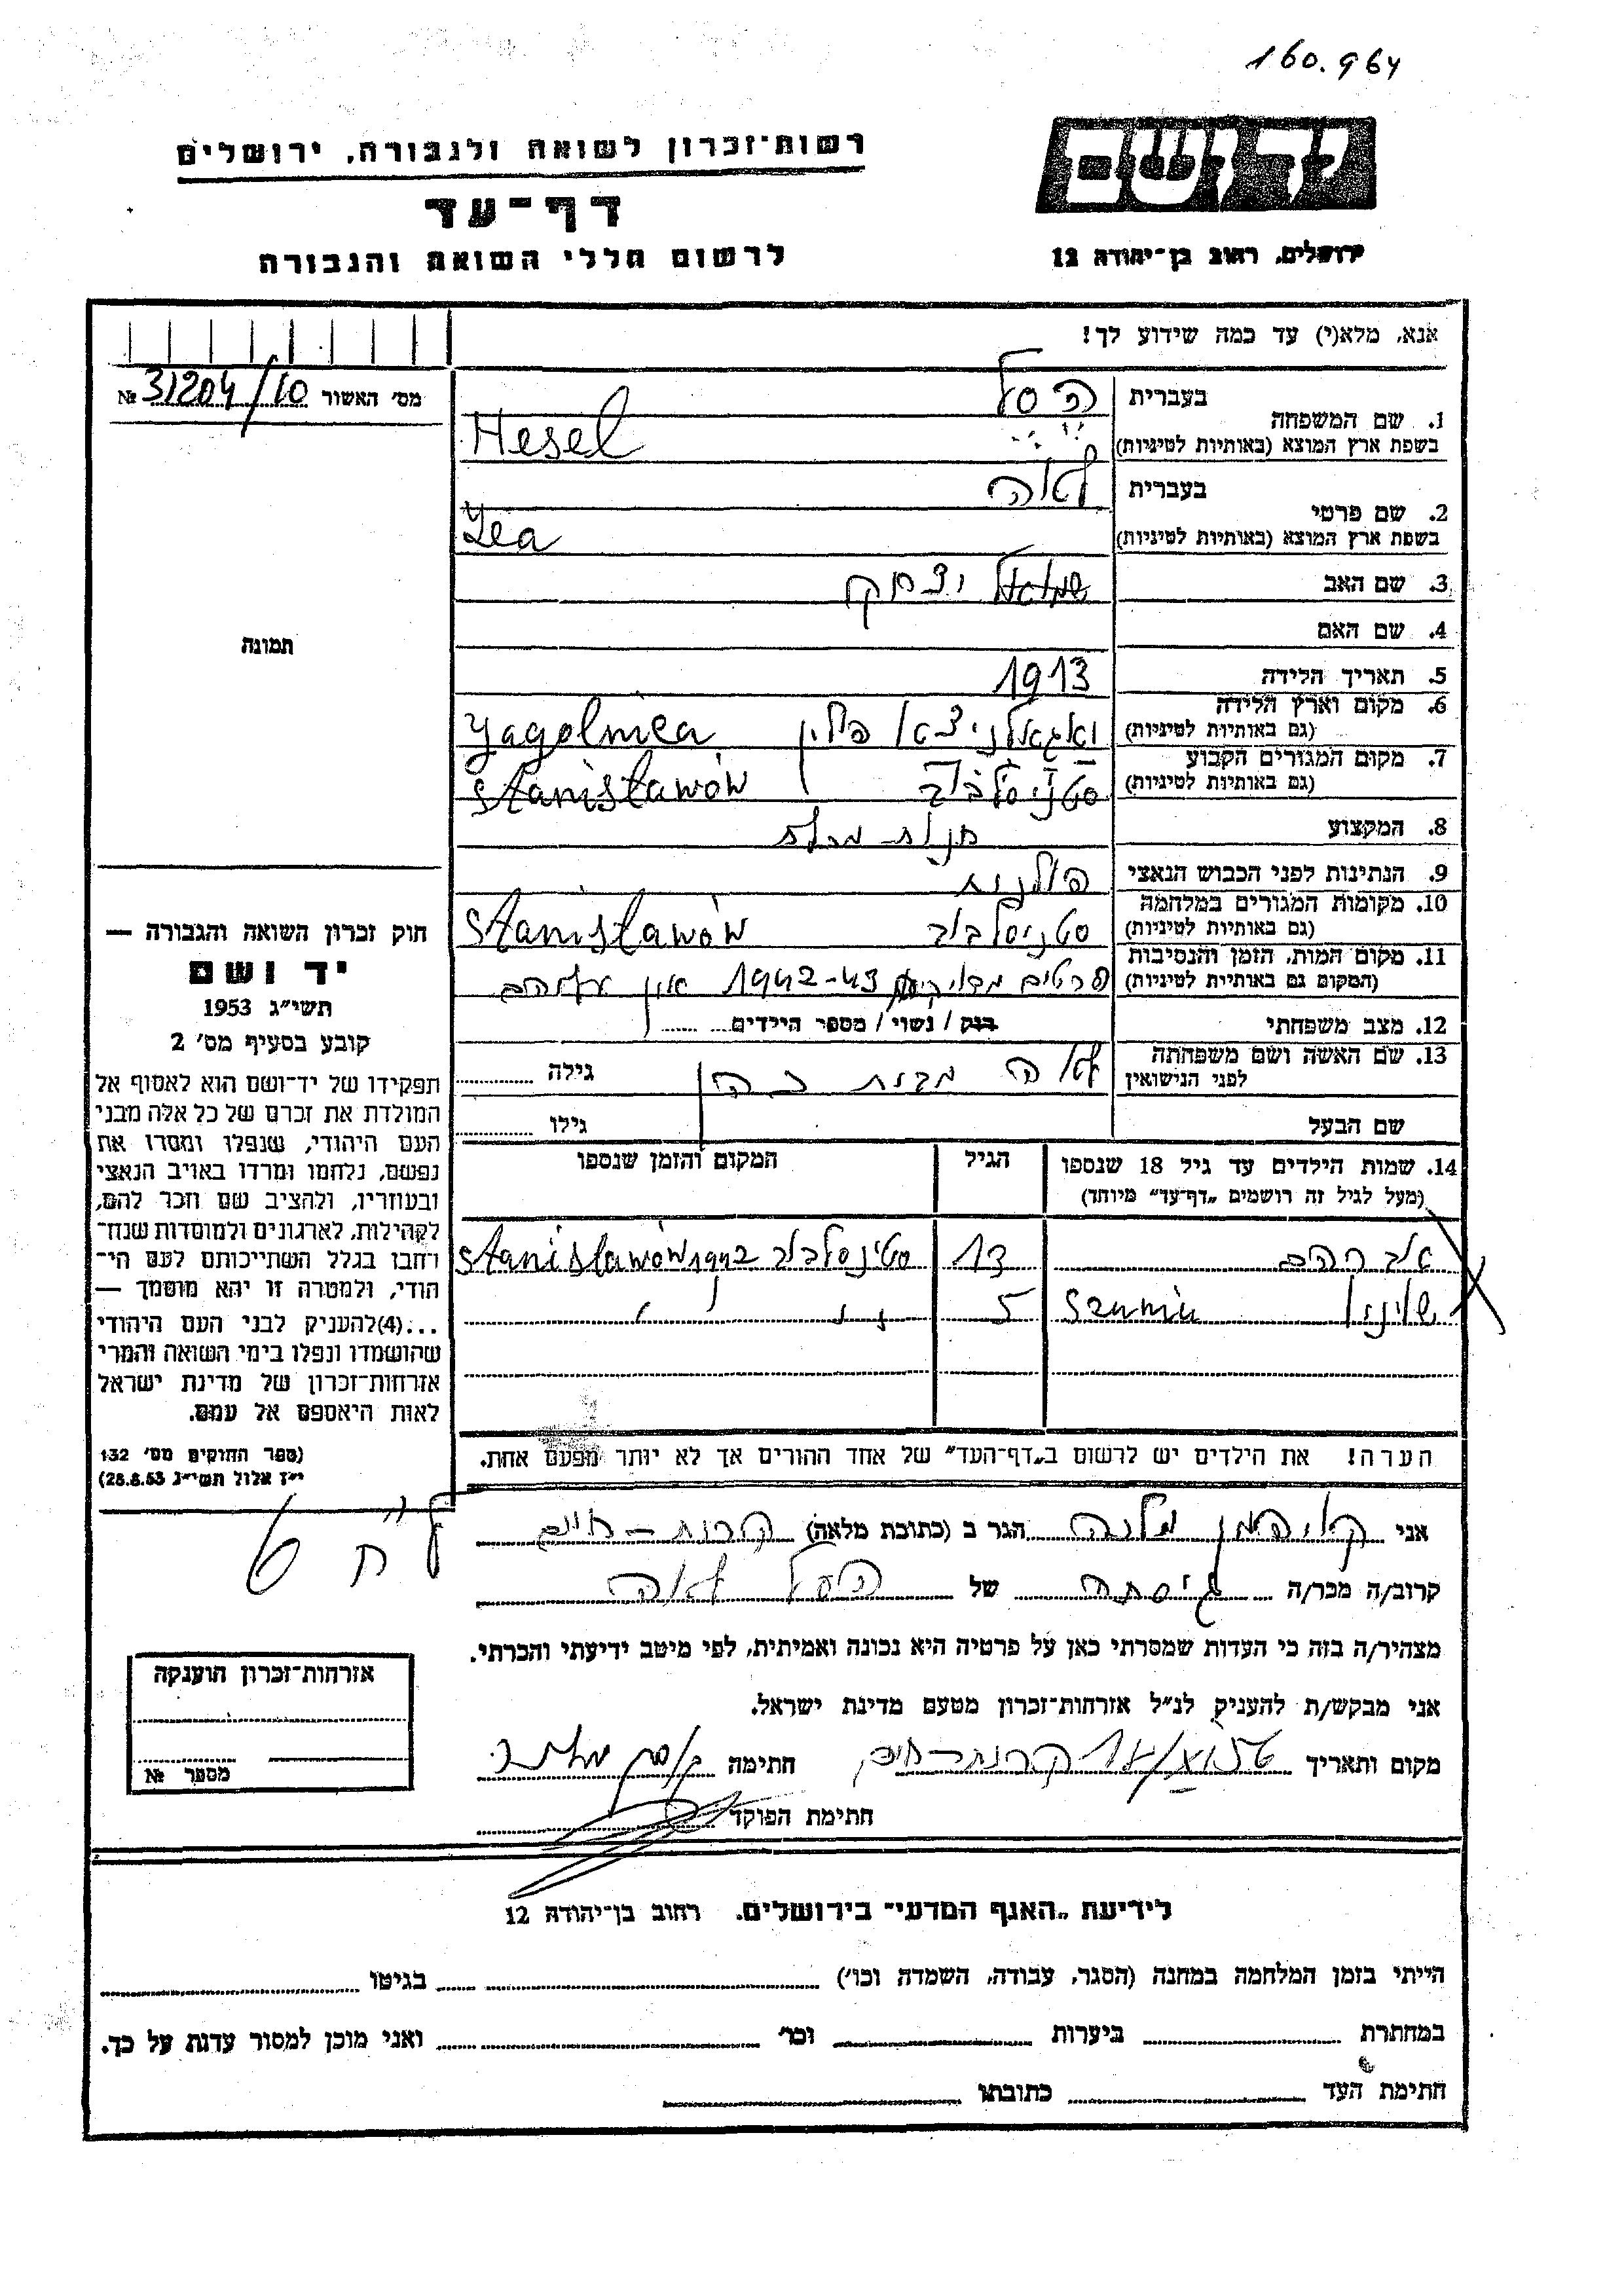 160.964
רשות־זכרון לשואה ולגבורה, ירושלים
יד ושם
דף־עד
לרשום חללי השואה והגבורה
ירושלים, רחוב בן־יהודה 12
אנא, מלא(י) עד כמה שידוע לך!
מס׳ האשור 31204/10 №
1. שם המשפחה
בעברית הסל
בשפת ארץ המוצא (באותיות לטיניות) Hesel
2. שם פרטי
בעברית לאה
בשפת ארץ המוצא (באותיות לטיניות) Lea
3. שם האב שמואל יצחק
4. שם האם
תמונה
5. תאריך הלידה 1913
6. מקום וארץ הלידה
(גם באותיות לטיניות) פולין Yagolnica
7. מקום המגורים הקבוע
(גם באותיות לטיניות) סטניסלבוב Stanisławów
8. המקצוע חנות
9. הנתינות לפני הכבוש הנאצי פולנית
10. מקומות המגורים במלחמה
(גם באותיות לטיניות) סטניסלבוב Stanisławów
11. מקום המות, הזמן והנסיבות
(המקום גם באותיות לטיניות) פרטים 1942-43
12. מצב משפחתי רווק / נשוי / מספר הילדים
13. שם האשה ושם משפחתה
לפני הנישואין לאה מבית כהן גילה
שם הבעל גילו
14. שמות הילדים עד גיל 18 שנספו הגיל המקום והזמן שנספו
(מעל לגיל זה רושמים „דף־עד״ מיוחד)
13 סטניסלבוב 1942 Stanisławów
5 ״ ״
הערה! את הילדים יש לרשום ב„דף־העד״ של אחד ההורים אך לא יותר מפעם אחת.
חוק זכרון השואה והגבורה —
יד ושם
תשי״ג 1953
קובע בסעיף מס׳ 2
תפקידו של יד־ושם הוא לאסוף אל
המולדת את זכרם של כל אלה מבני
העם היהודי, שנפלו ומסרו את
נפשם, נלחמו ומרדו באויב הנאצי
ובעוזריו, ולהציב שם וזכר להם,
לקהילות, לארגונים ולמוסדות שנח־
רחבו בגלל השתייכותם לעם הי־
הודי, ולמטרה זו יהא מוסמך —
...(4)להעניק לבני העם היהודי
שהושמדו ונפלו בימי השואה והמרי
אזרחות־זכרון של מדינת ישראל
לאות היאספם אל עמם.
(ספר החוקים מס׳ 132
י״ז אלול תשי״ג 28.8.53)
אני קליהמן מלכה הגר ב (כתובת מלאה) קרית-חיים
קרוב/ה מכר/ה גיסתה של הסל לאה
מצהיר/ה בזה כי העדות שמסרתי כאן על פרטיה היא נכונה ואמיתית, לפי מיטב ידיעתי והכרתי.
אני מבקש/ת להעניק לנ״ל אזרחות־זכרון מטעם מדינת ישראל.
מקום ותאריך קרית-חיים חתימה
חתימת הפוקד
אזרחות־זכרון הוענקה
מספר №
לידיעת „האגף המדעי״ בירושלים. רחוב בן־יהודה 12
הייתי בזמן המלחמה במחנה (הסגר, עבודה, השמדה וכו׳) בגיטו
במחתרת ביערות וכו׳ ואני מוכן למסור עדות על כך.
חתימת העד כתובתו